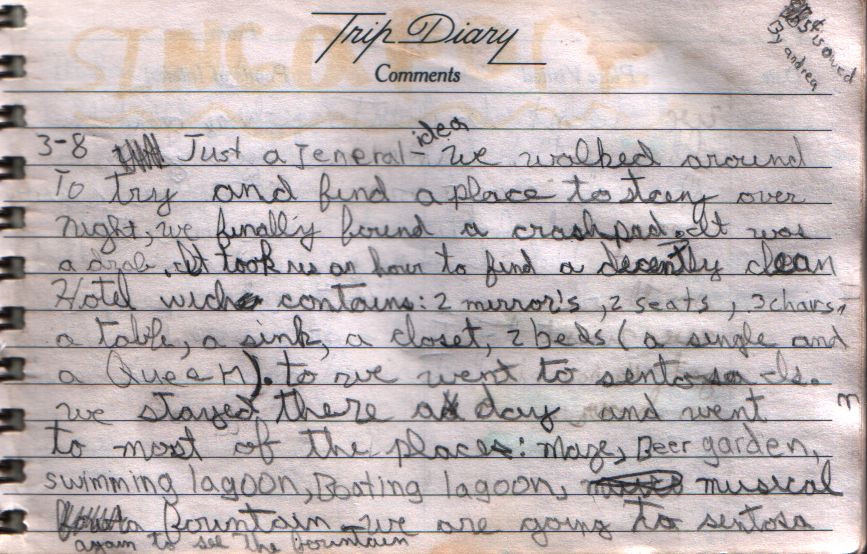 Trip Diary
Comments
is owed
By andrea
idea
3-8 Just a Jeneral - we walked around
To try and find a place to stay over
night, we finally found a crashpad. It was
a drab. It took us an hour to find a decently clean
Hotel wich contains: 2 mirror's, 2 seats, 3 chairs,
a table, a sink, a closet, 2 beds ( a single and
a Queen). to we went to sentosa Is.
we stayed there a day and went
to most of the places: maze, Beer garden,
swimming lagoon, Boating lagoon, musical
fountain - we are going to sentosa
again to see The fountain